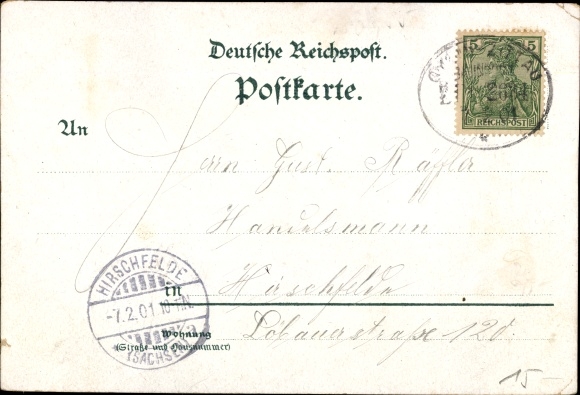 Deutsche Reichspost.
Postkarte.
5 5
REICHSPOST
An
Herrn Gust.
Handelsmann
HIRSCHFELDE
-7.2.01 10-11V.
(SACHSEN)
in Hirschfelde
Wohnung
(Straße und Hausnummer)
Löbauerstraße 12d.
15-